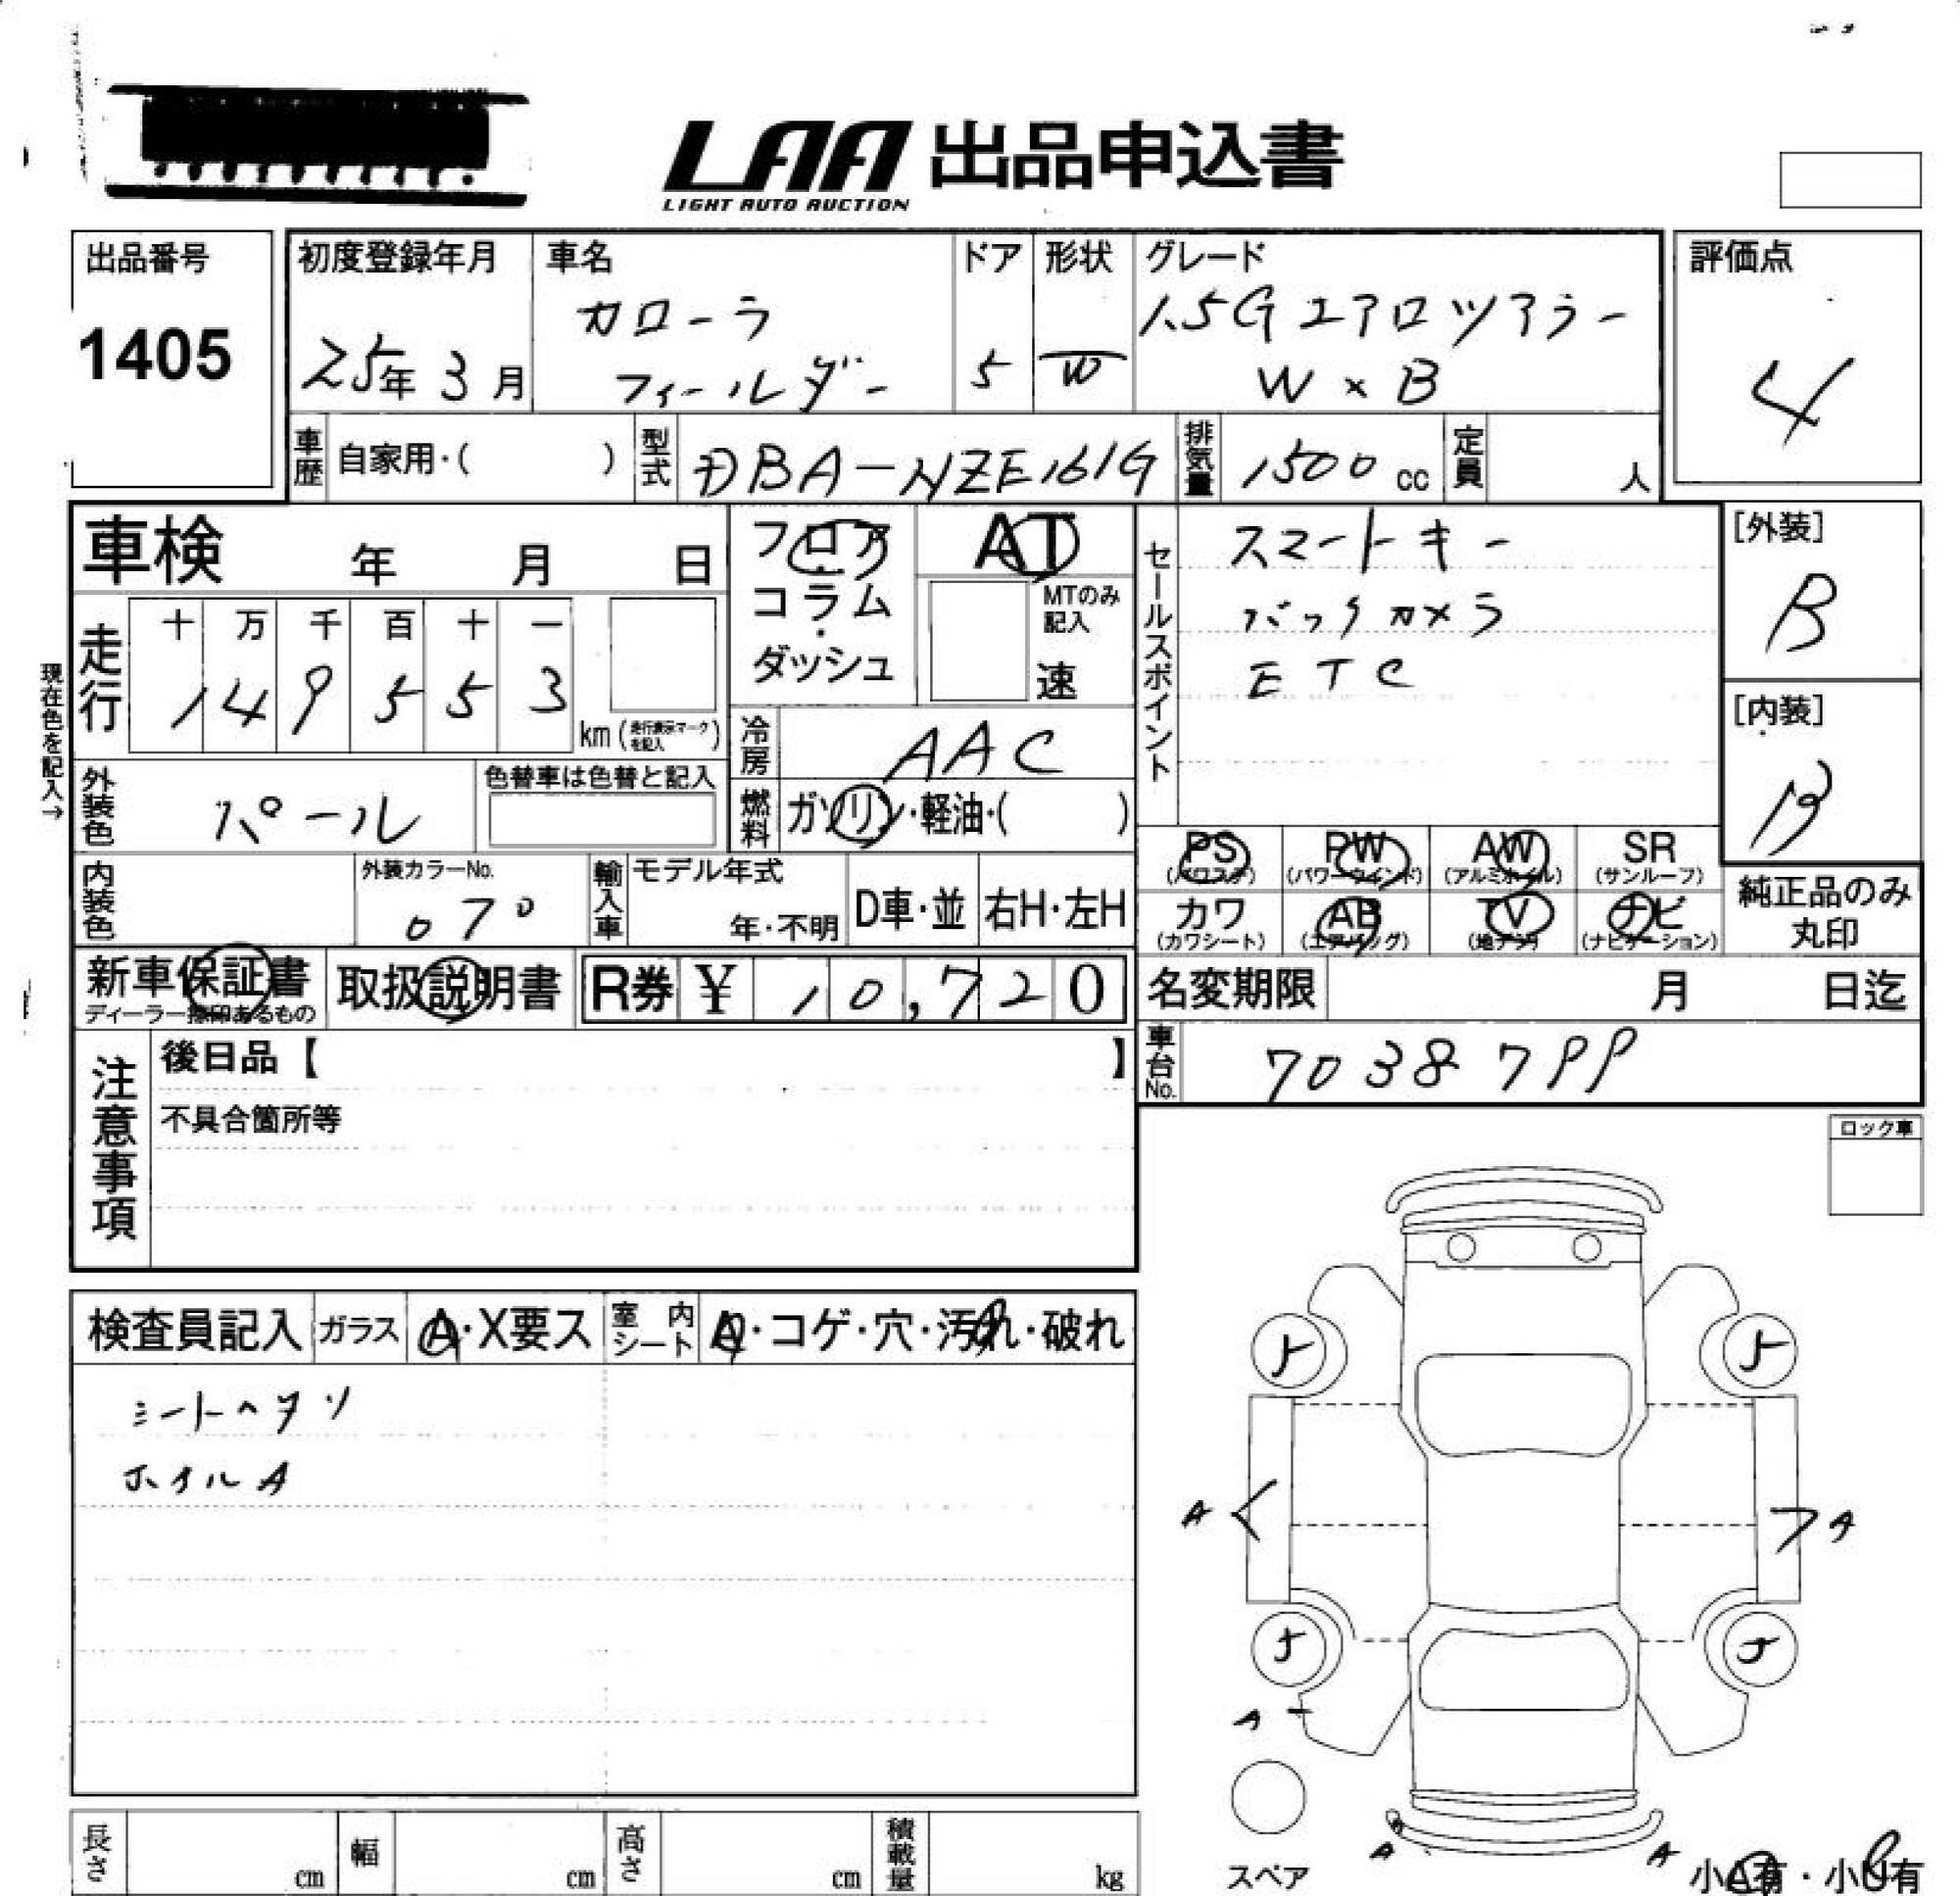 LAA 出品申込書
LIGHT AUTO AUCTION
出品番号
1405
初度登録年月
25年3月
車名
カローラ
フィールダー
ドア
5
形状
W
グレード
1.5Gエアロツアラー
W×B
評価点
4
車歴 自家用・( )
型式 DBA-NZE161G
排気量 1500 cc
定員 人
車検 年 月 日
フロア・
コラム・
ダッシュ
AT
MTのみ
記入
速
現在色を記入→
走行
十 万 千 百 十 一
1 4 9 5 5 3
km (走行表示マークを記入)
冷房 AAC
外装色 パール
色替車は色替と記入
燃料 ガソリン・軽油・( )
内装色
外装カラーNo.
070
輸入車
モデル年式
年・不明
D車・並
右H・左H
セールスポイント
スマートキー
バックカメラ
ETC
[外装]
B
[内装]
B
PS
(パワステ)
PW
(パワーウインド)
AW
(アルミホイル)
SR
(サンルーフ)
カワ
(カワシート)
AB
(エアバッグ)
TV
(地デジ)
ナビ
(ナビゲーション)
純正品のみ
丸印
新車保証書
ディーラー捺印あるもの
取扱説明書
R券 ¥ 10,720
名変期限 月 日迄
車台No. 7038799
注意事項
後日品【 】
不具合箇所等
ロック車
検査員記入
ガラス A・X要ス
室内シート A・コゲ・穴・汚れ・破れ
シートヘタリ
ホイルA
A A
A
A A
スペア
小A有・小U有
長さ cm
幅 cm
高さ cm
積載量 kg